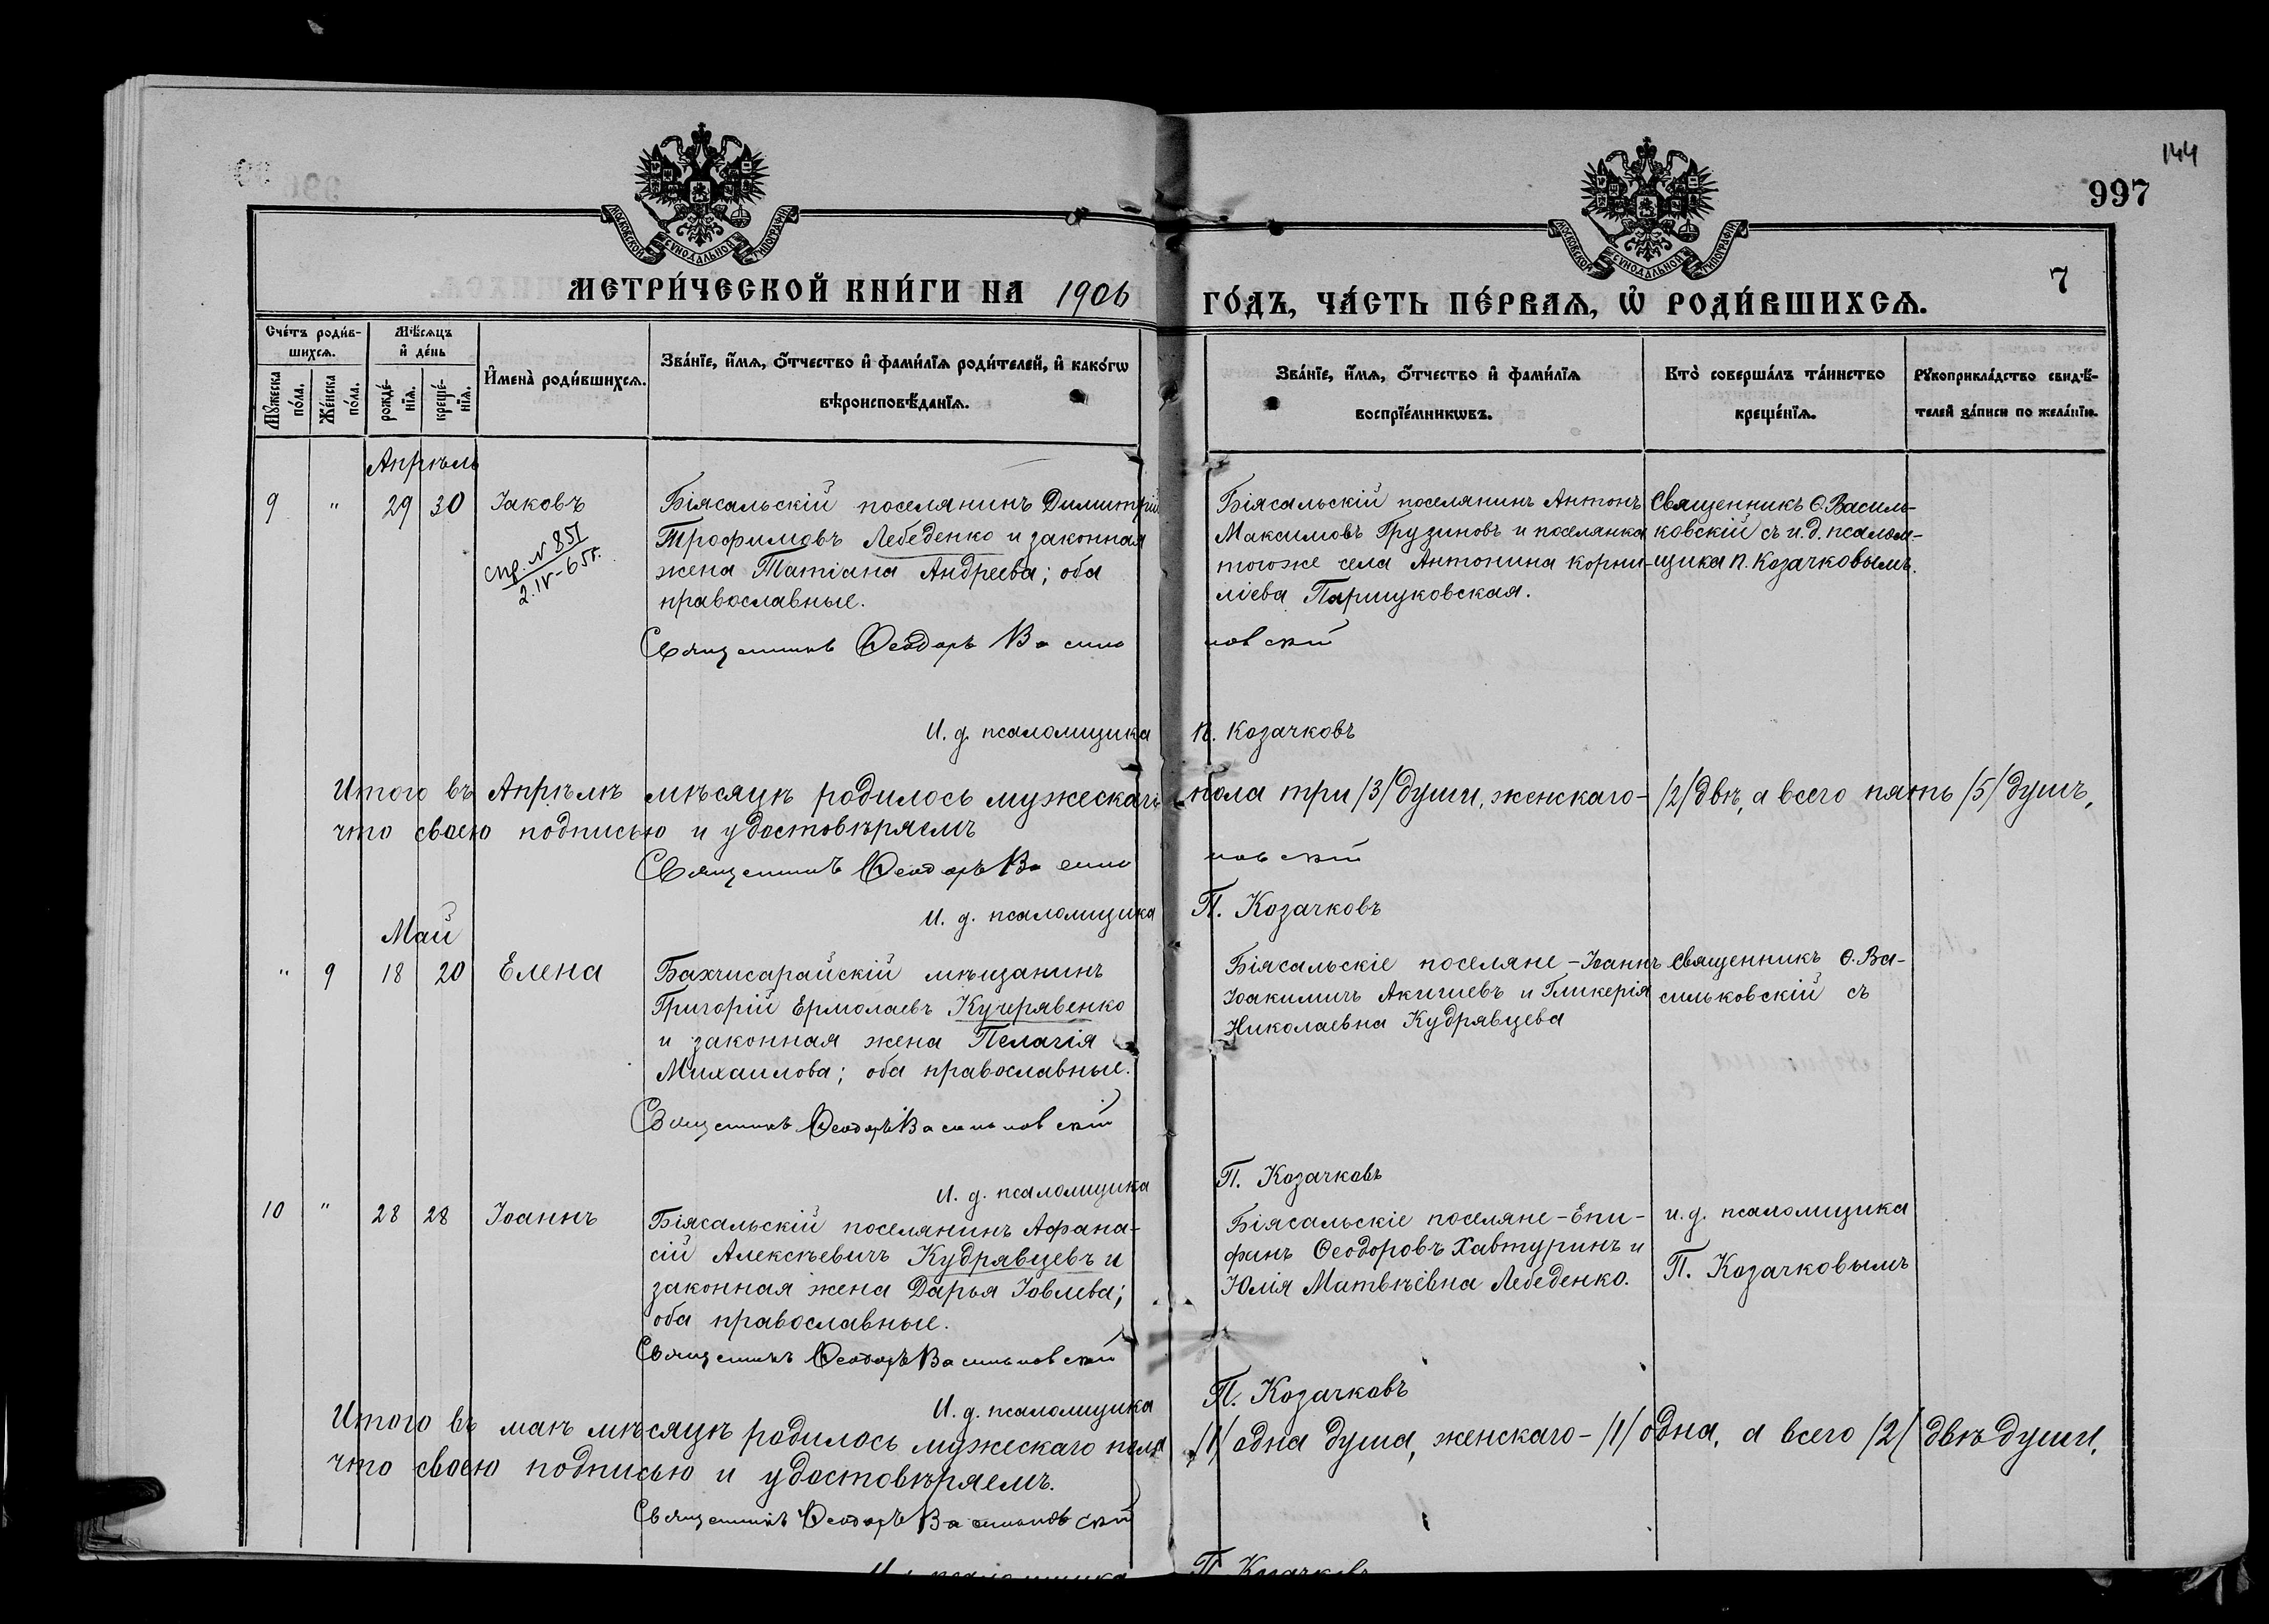 144
997
7
МОСКОВСКОЙ СѴНОДАЛЬНОЙ ТИПОГРАФІИ
МОСКОВСКОЙ СѴНОДАЛЬНОЙ ТИПОГРАФІИ
МЕТРИ́ЧЕСКОЙ КНИ́ГИ НА 1906 ГО́ДЪ, ЧА́СТЬ ПЕ́РВАѦ, Ѽ РОДИ́ВШИХСѦ.
Сче́тъ роди́в-
шихсѧ.
Мꙋ́жеска по́ла.
Же́нска по́ла.
Мѣ́сѧцъ
и҆ де́нь
рожде́-
нїѧ.
креще́-
нїѧ.
И҆мена̀ роди́вшихсѧ.
Зва́нїе, и҆́мѧ, ѻ҆́тчество и҆ фами́лїѧ роди́телей, и҆ како́гѡ
вѣроисповѣ́данїѧ.
Зва́нїе, и҆́мѧ, ѻ҆́тчество и҆ фами́лїѧ
воспрїе́мникѡвъ.
Кто̀ соверша́лъ та́инство
креще́нїѧ.
Рꙋкоприкла́дство свидѣ́-
телей за́писи по жела́нїю.
Апрѣль
9 " 29 30 Іаковъ
спр. N 851
2.IV-65г.
Біясальскій поселянинъ Димитрій
Трофимовъ Лебеденко и законная
жена Татіана Андреева; оба
православные.
Біясальскій поселянинъ Антонъ
Максимовъ Грузиновъ и поселянка
тогоже села Антонина Корни-
ліева Паршуковская.
Священникъ Ѳ. Василь-
ковскій съ и.д. псалом-
щика П. Козачковымъ.
Священникъ Ѳеодоръ Васильковскій
И. д. псаломщика П. Козачковъ
Итого въ Апрѣлѣ мѣсяцѣ родилось мужескаго пола три /3/ души, женскаго - /2/ двѣ, а всего пять /5/ душъ,
что своею подписью и удостовѣряемъ
Священникъ Ѳеодоръ Васильковскій
И. д. псаломщика П. Козачковъ
Май
" 9 18 20 Елена
Бахчисарайскій мѣщанинъ
Григорій Ермолаевъ Кучерявенко
и законная жена Пелагія
Михаилова; оба православные.
Біясальскіе поселяне - Іоаннъ
Іоакимичъ Акишевъ и Гликерія
Николаевна Кудрявцева
Священникъ Ѳ. Ва-
сильковскій съ
Священникъ Ѳеодоръ Васильковскій
И. д. псаломщика П. Козачковъ
10 " 28 28 Іоаннъ
Біясальскій поселянинъ Афана-
сій Алексѣевичъ Кудрявцевъ и
законная жена Дарья Іовлева;
оба православные.
Біясальскіе поселяне - Епи-
фанъ Ѳеодоровъ Хавтуринъ и
Юлія Матвѣевна Лебеденко.
и.д. псаломщика
П. Козачковымъ
Священникъ Ѳеодоръ Васильковскій
И. д. псаломщика П. Козачковъ
Итого въ маѣ мѣсяцѣ родилось мужескаго пола /1/ одна душа, женскаго - /1/ одна, а всего /2/ двѣ души,
что своею подписью и удостовѣряемъ.
Священникъ Ѳеодоръ Васильковскій
И. д. псаломщика П. Козачковъ